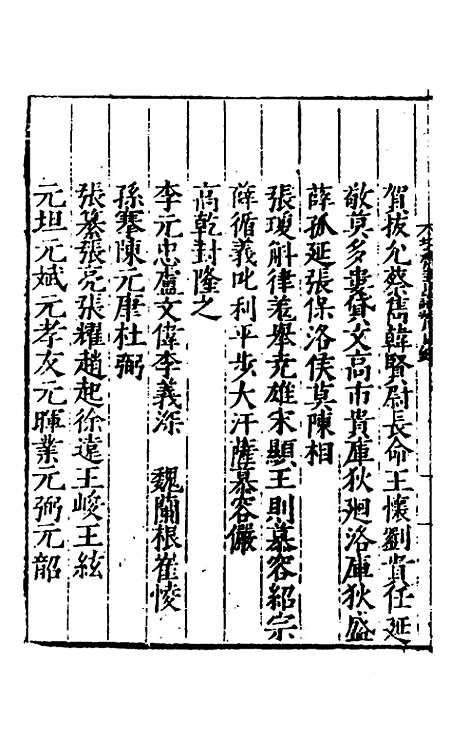 賀拔允蔡儁韓賢尉長命王懷劉貴任延
敬莫多婁貸文高市貴庫狄廻洛庫狄盛
薛孤延張保洛侯莫陳相
張瓊斛律羌舉堯雄宋顯王則慕容紹宗
薛循義叱利平步大汗薩慕容儼
高乾封隆之
李元忠盧文偉李義深　魏蘭根崔㥄
孫搴陳元康杜弼
張纂張亮張耀趙起徐遠王峻王紘
元坦元斌元孝友元暉業元弼元韶